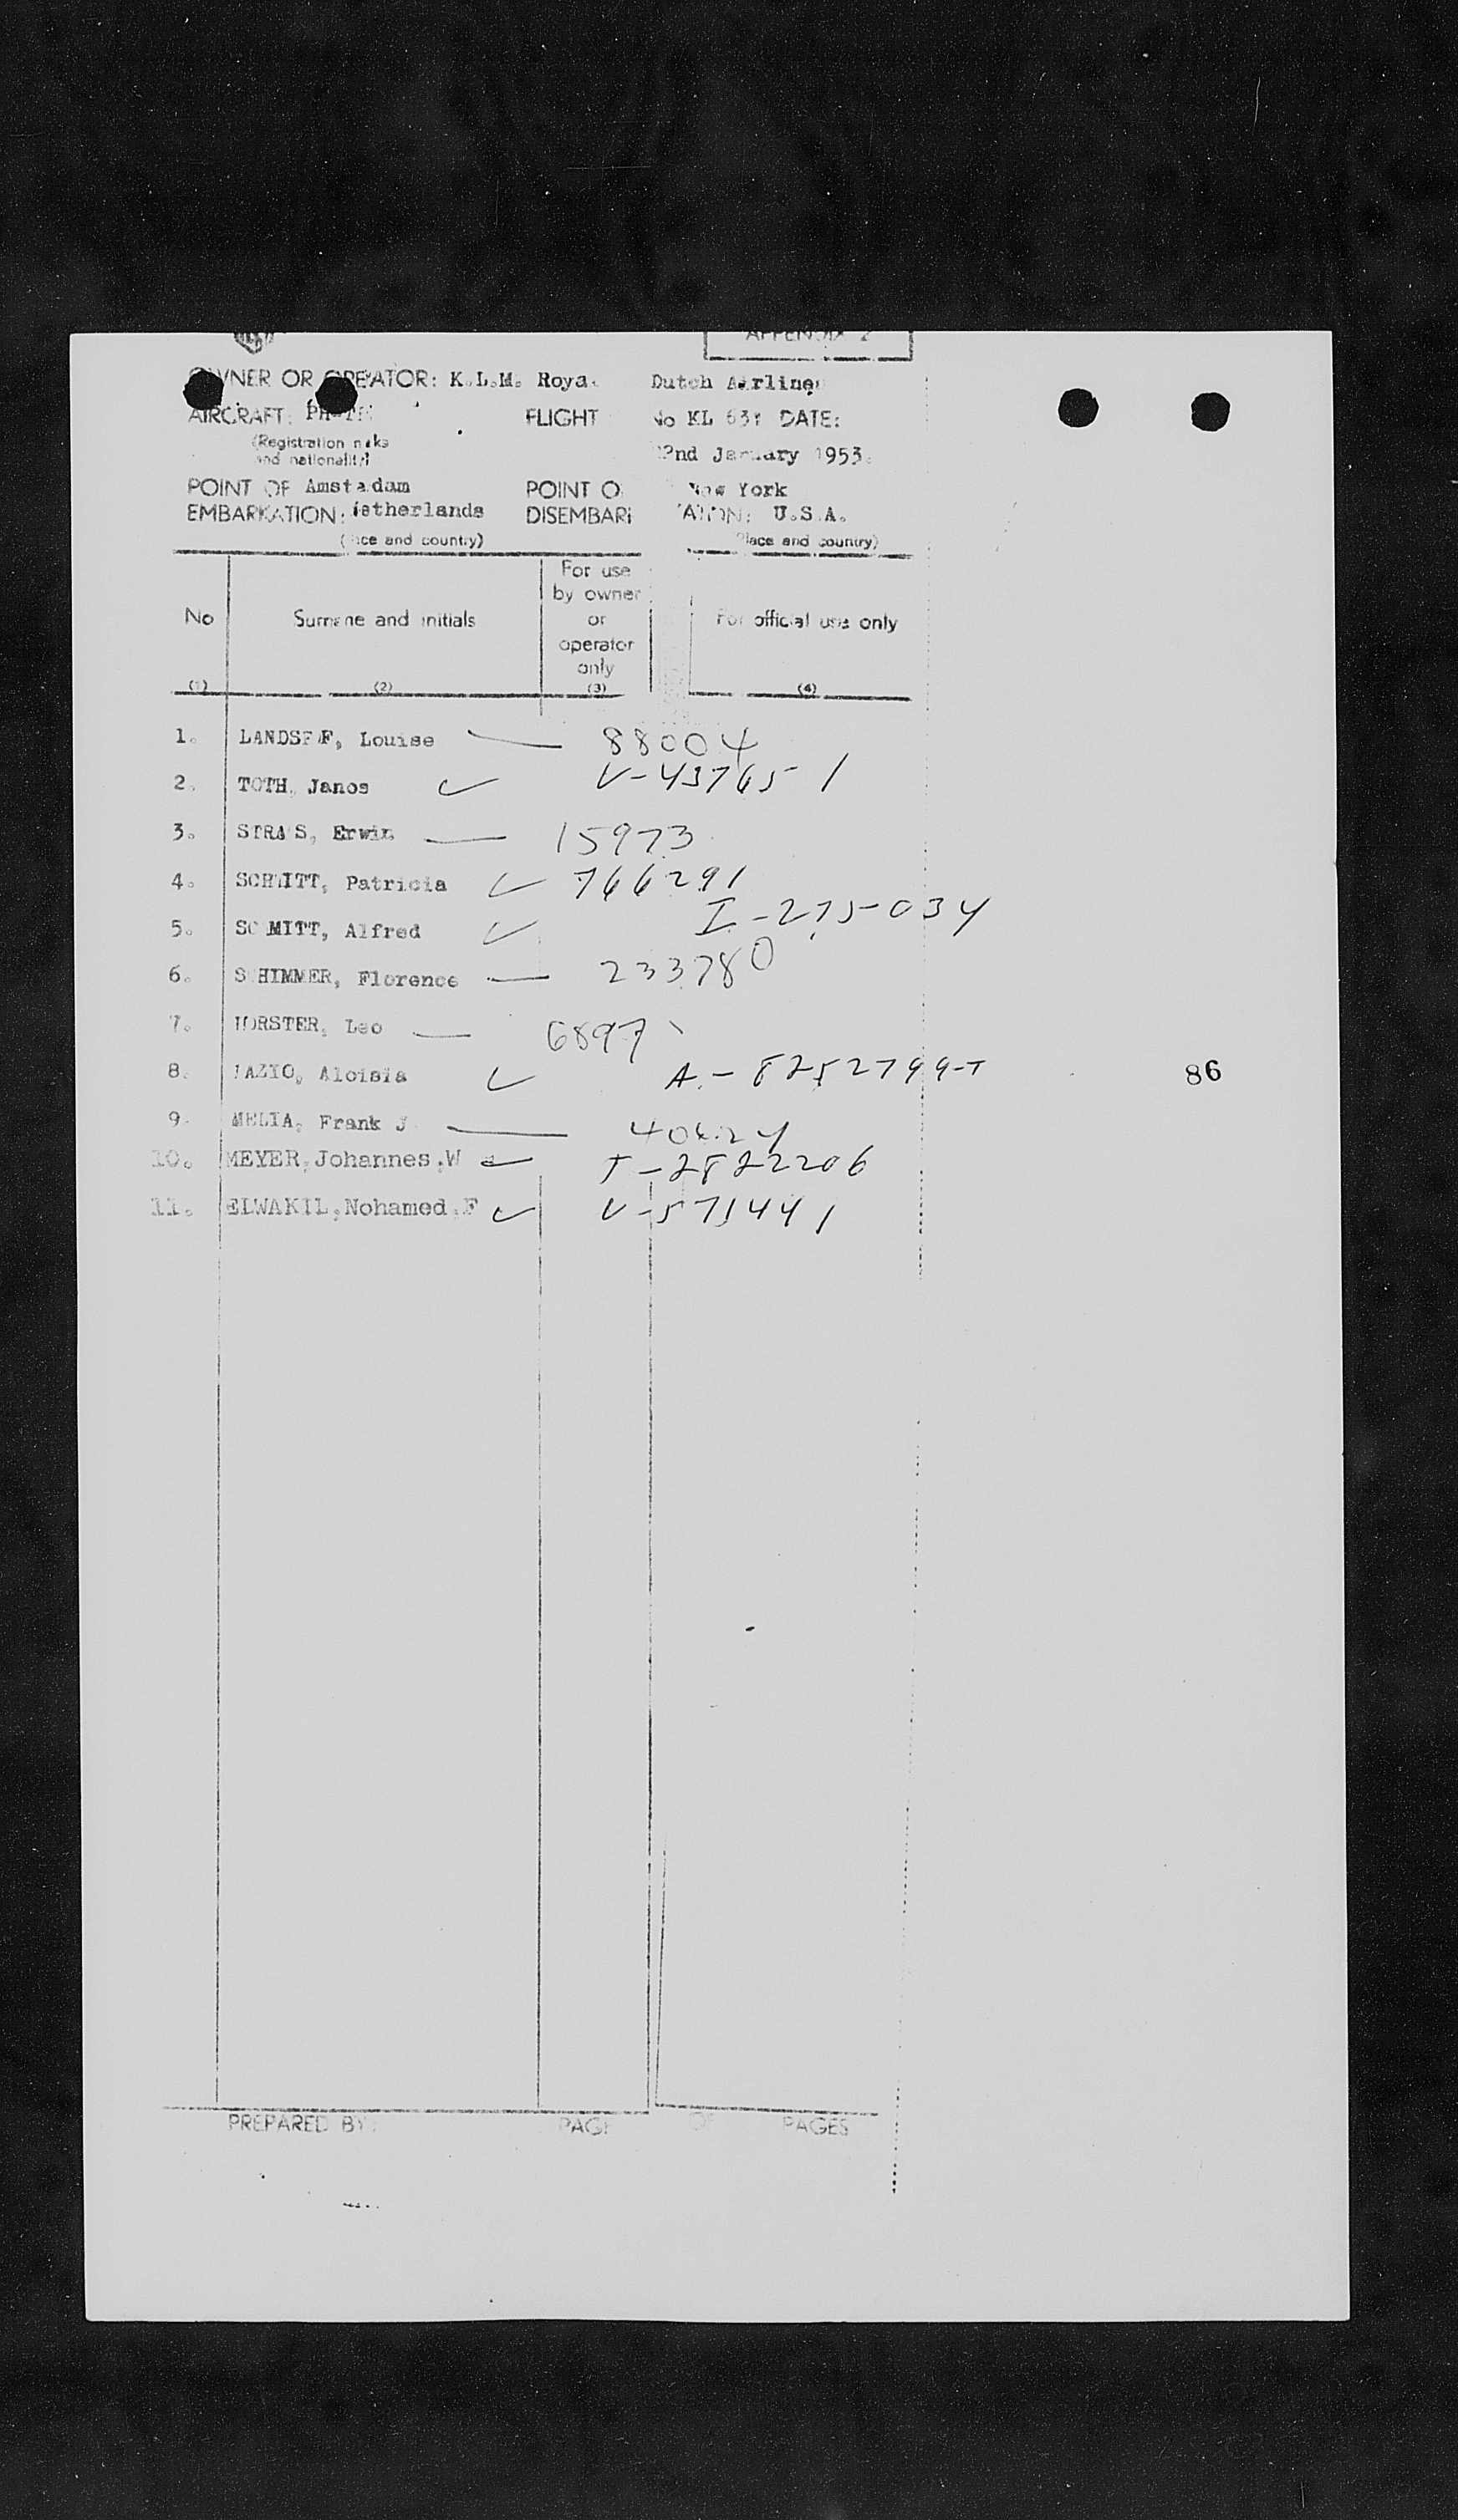 APPENDIX 2
OWNER OR OPERATOR: K.L.M. Royal Dutch Airlines
AIRCRAFT: FLIGHT No KL DATE:
(Registration marks
and nationality)
22nd January 1953.
POINT OF Amsterdam POINT OF New York
EMBARKATION: Netherlands DISEMBARKATION: U.S.A.
(Place and country) (Place and country)
No Surname and initials For use by owner or operator only For official use only
(1) (2) (3) (4)
1. Louise 88004
2. TOTH, Janos V-437651
3. Erwin 15973
4. SCHMITT, Patricia 766291
5. SCHMITT, Alfred I-275034
6. SCHIMMER, Florence 233780
7. Leo 6897
8. Aloisia A-8252799-T
86
9. MELIA, Frank J
10. MEYER, Johannes,W T-2822206
11. ELWAKIL, Nohamed.F V-571441
PREPARED BY: PAGE OF PAGES